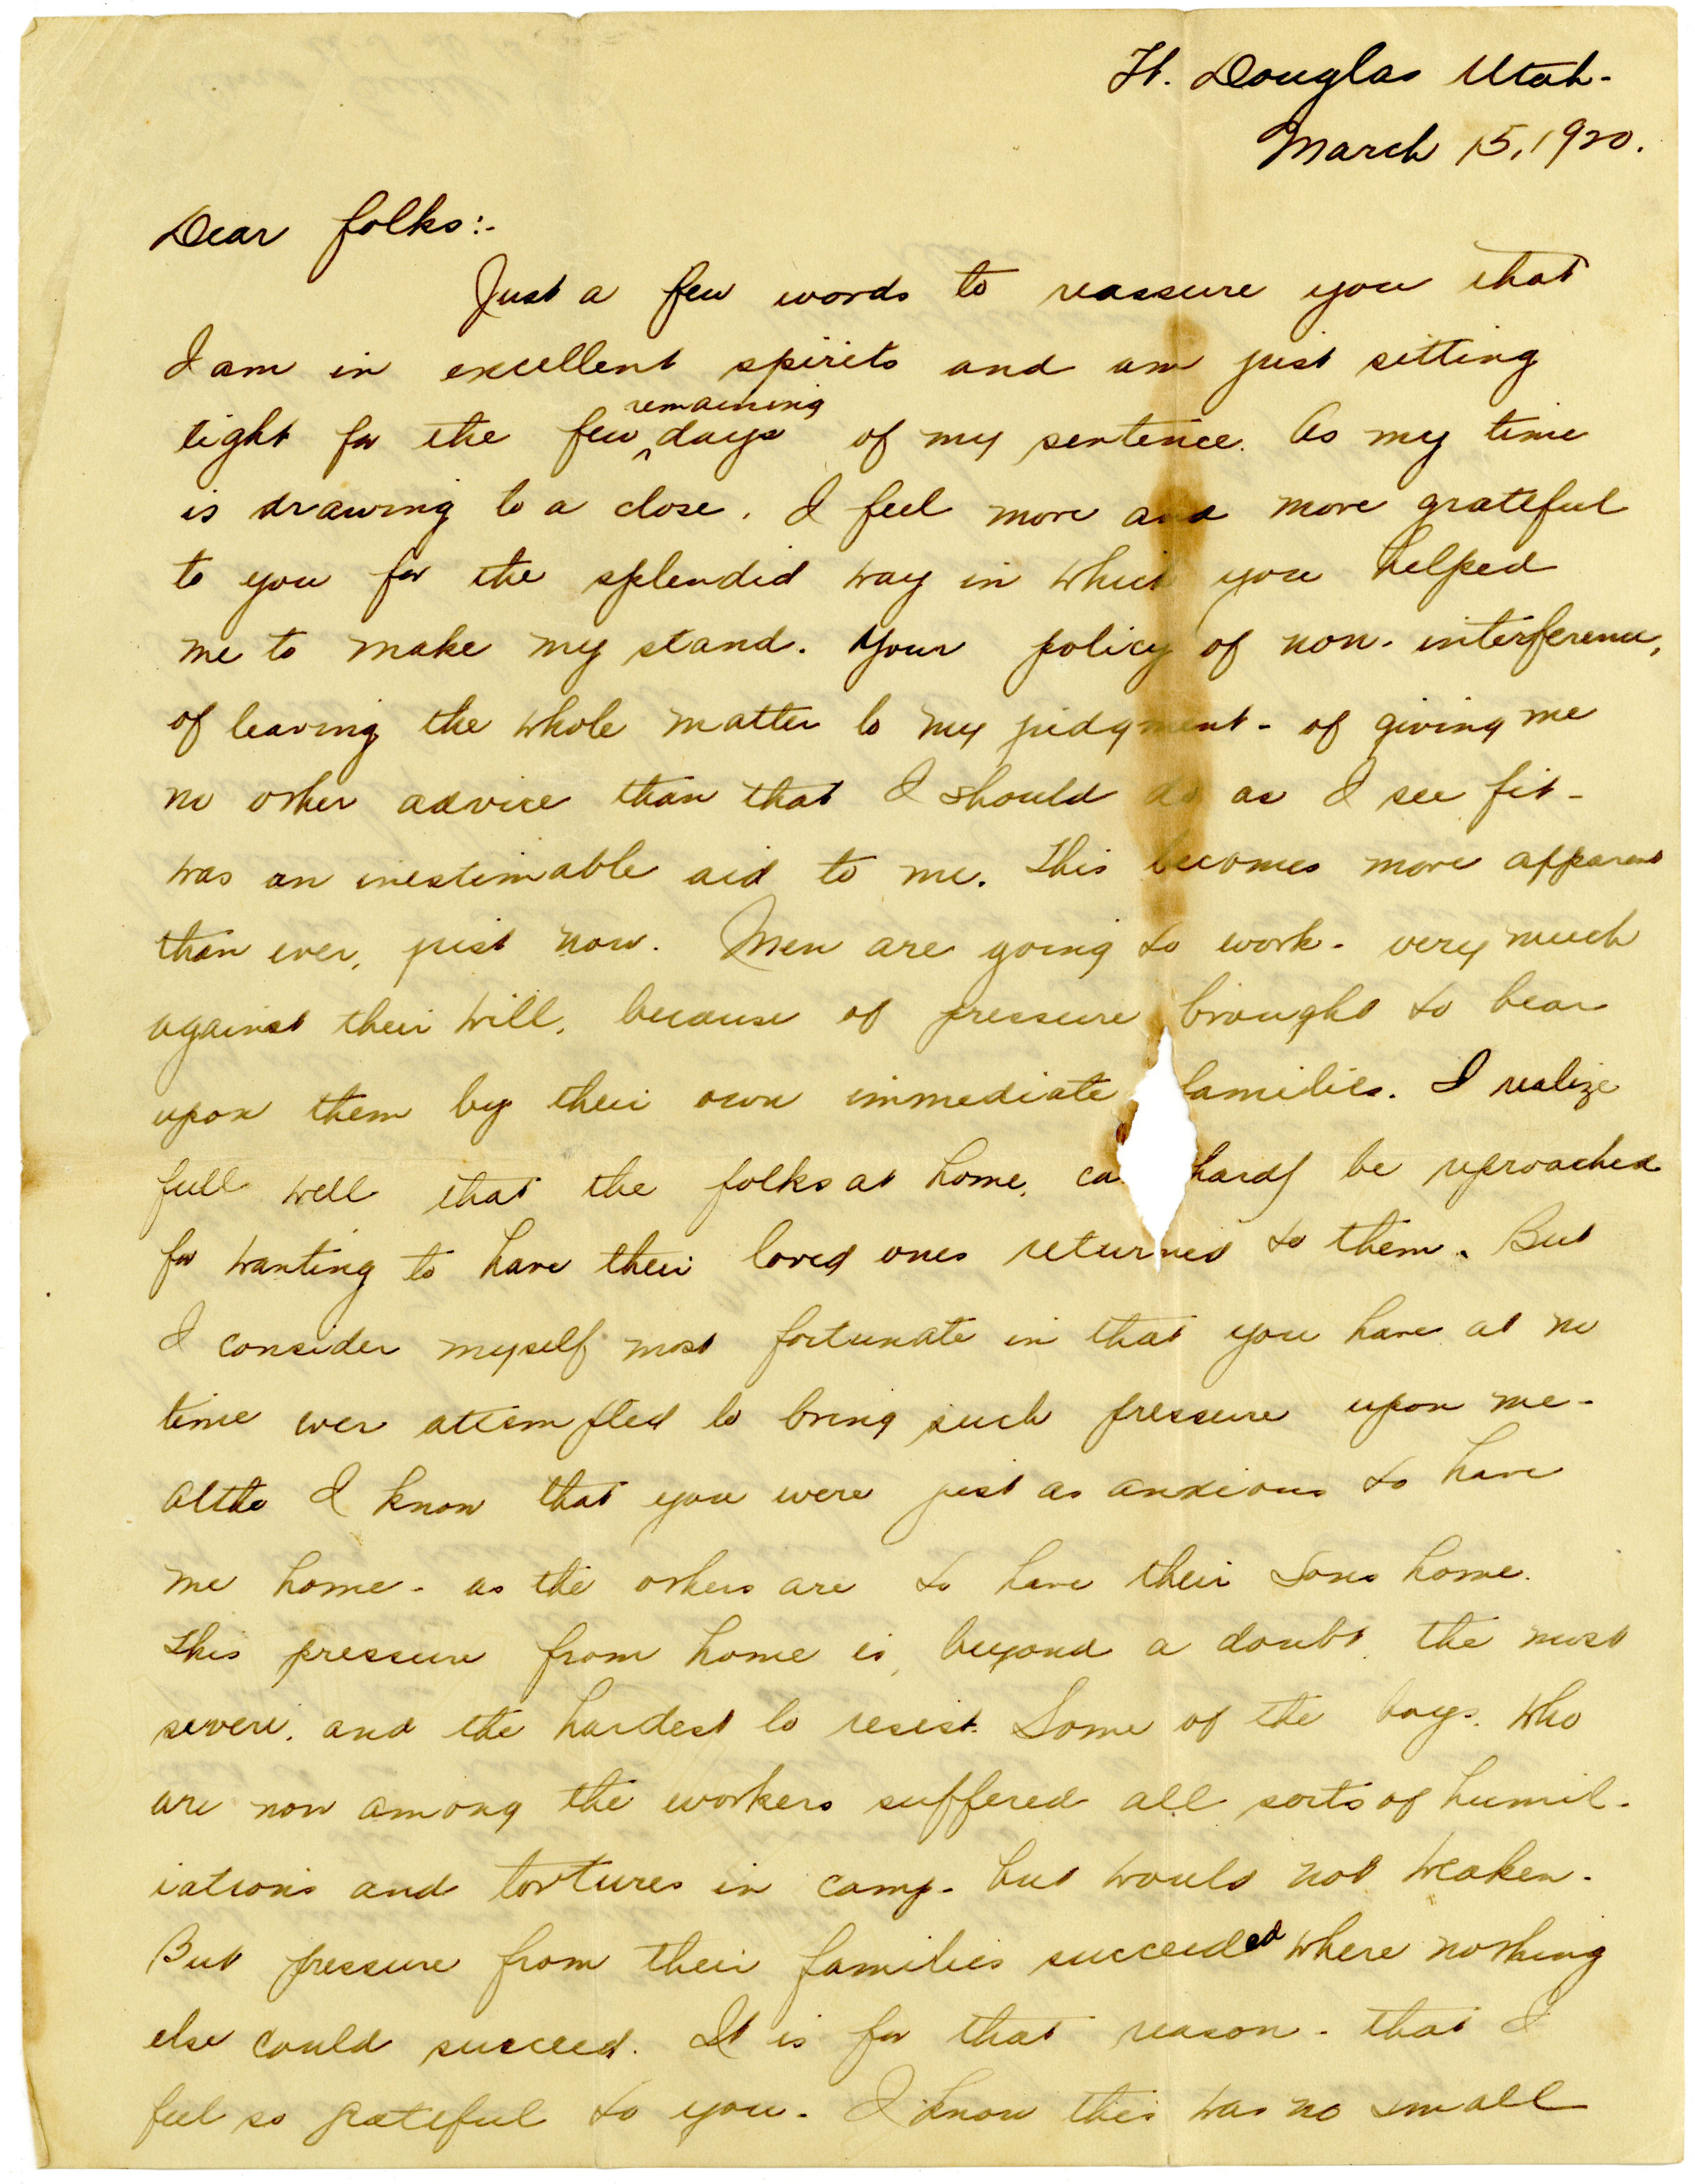 Ft. Douglas Utah-
March 15, 1920.
Dear folks:-
Just a few words to reassure you that
I am in excellent spirits and am just sitting
remaining
tight for the few days of my sentence. As my time
is drawing to a close, I feel more and more grateful
to you for the splendid way in which you helped
me to make my stand. Your policy of non-interference,
of leaving the whole matter to my judgment - of giving me
no other advice than that I should do as I see fit -
was an inestimable aid to me. This becomes more apparent
than ever, just now. Men are going to work - very much
against their will, because of pressure brought to bear
upon them by their own immediate families. I realize
full well that the folks at home, ca hardly be reproached
for wanting to have their loved ones returned to them. But
I consider myself most fortunate in that you have at no
time ever attempted to bring such pressure upon me -
altho I know that you were just as anxious to have
me home - as the others are to have their sons home.
This pressure from home is, beyond a doubt, the most
severe, and the hardest to resist. Some of the boys, who
are now among the workers suffered all sorts of humil-
iations and tortures in camp - but would not weaken.
But pressure from their families succeeded where nothing
else could succeed. It is for that reason - that I
feel so grateful to you. I know this was no small